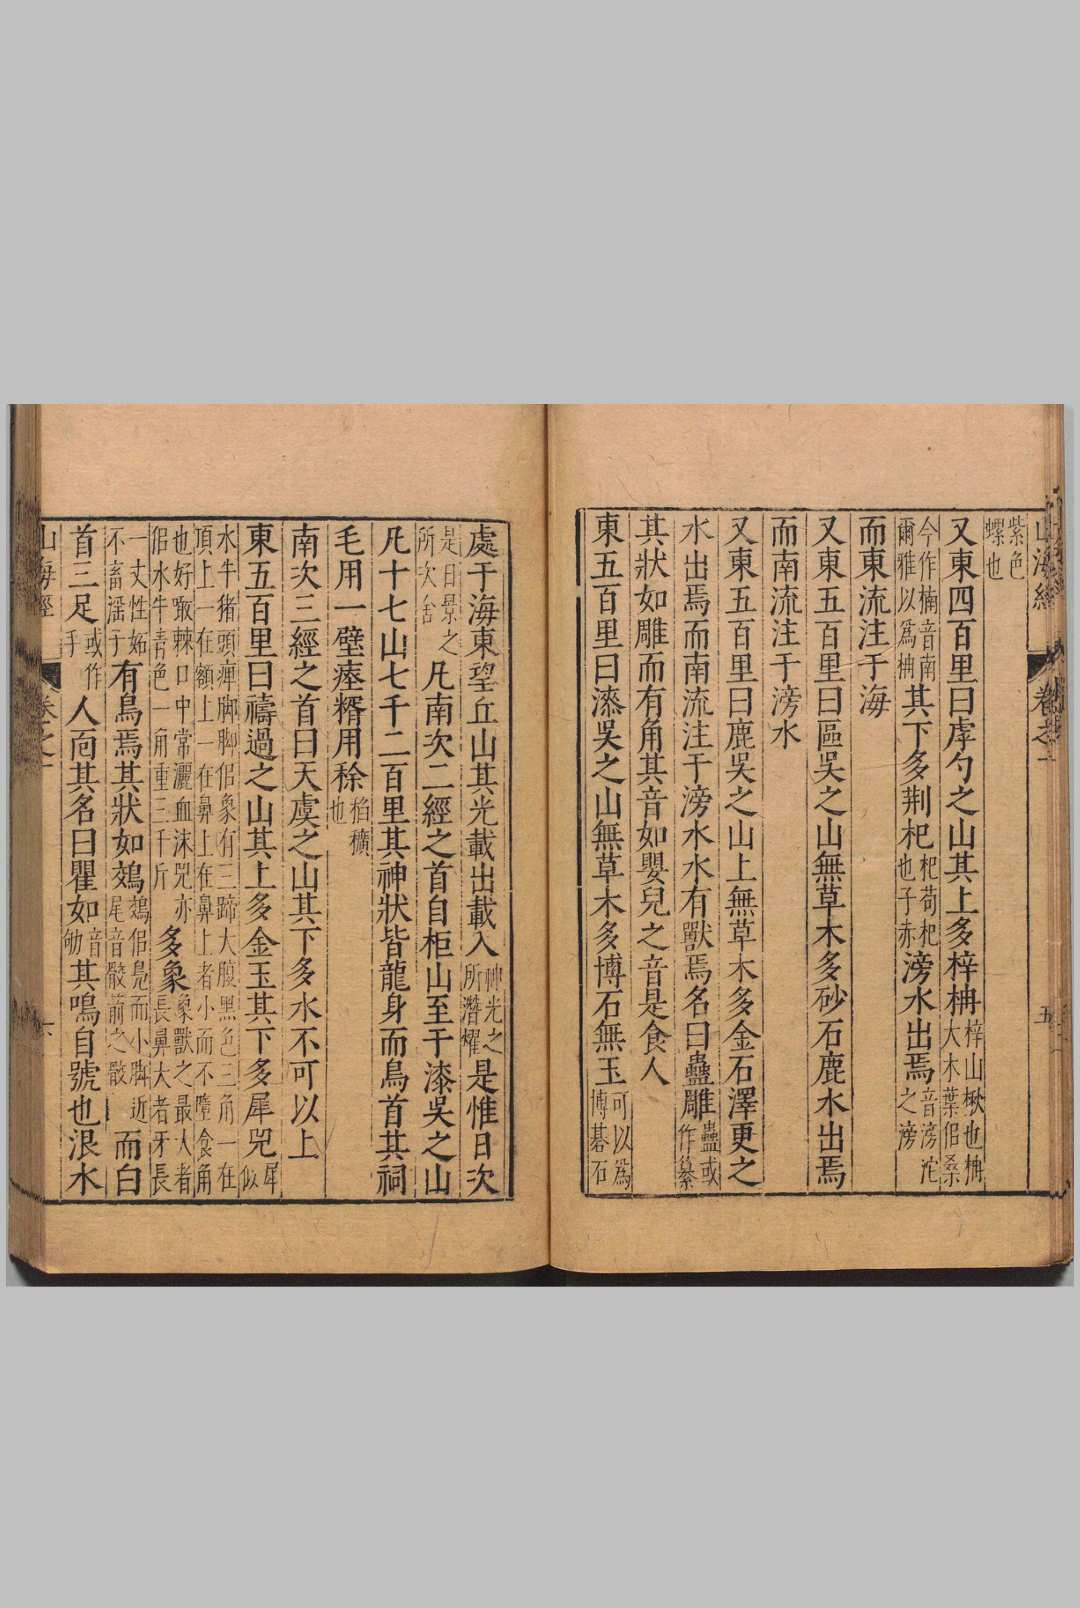 山海經 卷之一 五
紫色螺也
又東四百里曰虖勺之山其上多梓枏梓山楸也枏大木葉佀桑
今作楠音南爾雅以爲枏其下多荆杞杞苟杞也子赤滂水出焉音滂沱之滂
而東流注于海
又東五百里曰區吳之山無草木多砂石鹿水出焉
而南流注于滂水
又東五百里曰鹿吳之山上無草木多金石澤更之
水出焉而南流注于滂水水有獸焉名曰蠱雕蠱或作纂
其狀如雕而有角其音如嬰兒之音是食人
東五百里曰漆吳之山無草木多博石無玉可以爲博碁石
處于海東望丘山其光載出載入神光之所潛燿是惟日次
是日景之所次舍凡南次二經之首自柜山至于漆吳之山
凡十七山七千二百里其神狀皆龍身而鳥首其祠
毛用一璧瘞糈用稌稻穬也
南次三經之首曰天虞之山其下多水不可以上
東五百里曰禱過之山其上多金玉其下多犀兕犀似
水牛豬頭痺脚脚佀象有三蹄大腹黑色三角一在頂上一在額上一在鼻上在鼻上者小而不墮食角
也好噉棘口中常灑血沫兕亦佀水牛青色一角重三千斤多象象獸之最大者長鼻大者牙長
一丈性妬不畜淫子有鳥焉其狀如鵁鵁佀鳧而小脚近尾音骹箭之骹而白
首三足或作手人面其名曰瞿如音劬其鳴自號也泿水
山海經 卷之一 六